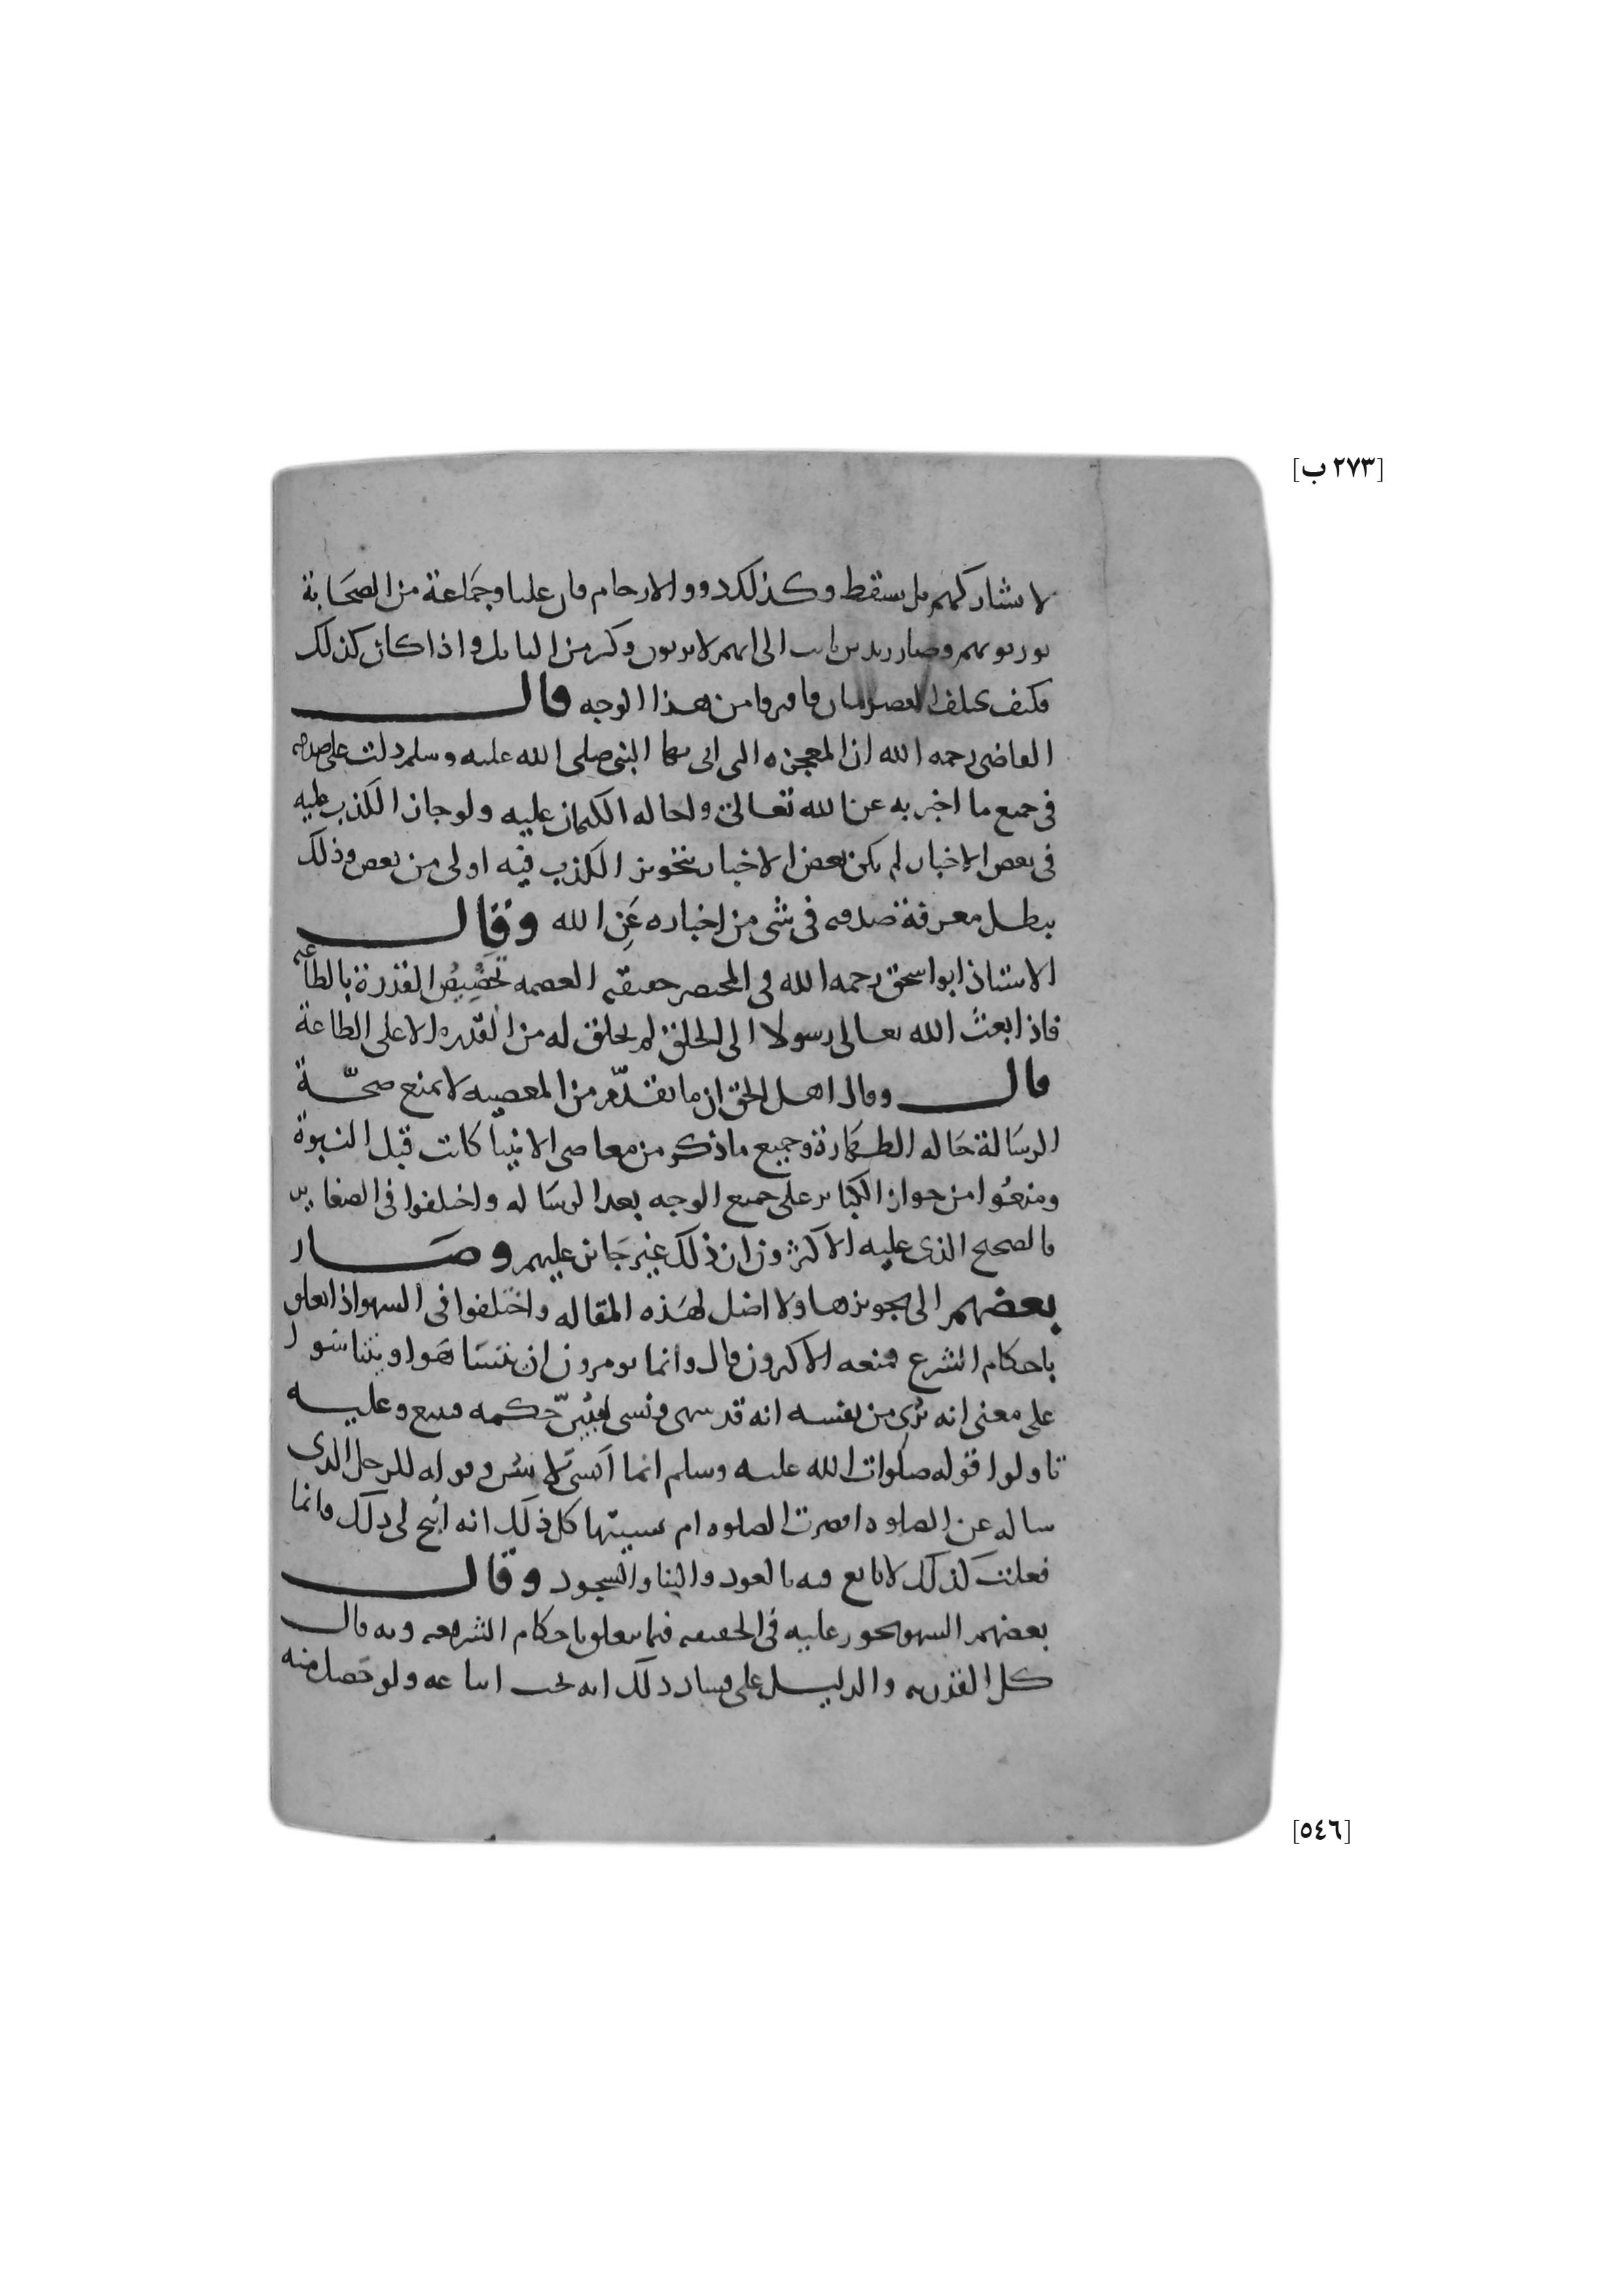 [٢٧٣ ب]
لا يشاركهم بل يسقط وكذلك ذوو الارحام فان عليا وجماعة من الصحابة
يورثونهم وصار زيد بن ثابت الى انهم لا يرثون وكم من المسائل واذا كان كذلك
فكيف من هذا الوجه قال
القاضى رحمه الله ان المعجزه التى اتى بها النبى صلى الله عليه وسلم دلت على صدقه
فى جميع ما اخبر به عن الله تعالى واحاله الكتمان عليه ولو جاز الكذب عليه
فى بعض الاخبار لم يكن بعض الاخبار بتجويز الكذب فيه اولى من بعض وذلك
يبطل معرفة صدقه فى شى من اخباره عن الله وقال
الاستاذ ابو اسحق رحمه الله فى المختصر حقيقة العصمه تخصيص القدرة بالطاعه
فاذا بعث الله تعالى رسولا الى الخلق لم يخلق له من القدره الا على الطاعة
قال وقال اهل الحق ان ما تقدم من المعصيه لا يمنع صحة
الرسالة حاله الطهارة وجميع ما ذكر من معاصى الانبيا كانت قبل النبوة
ومنعوا من جواز الكبائر على جميع الوجه بعد الرساله واختلفوا فى الصغاير
فالصحيح الذى عليه الاكثرون ان ذلك غير جائز عليهم وصار
بعضهم الى تجويزها ولا اصل لهذه المقاله واختلفوا فى السهو اذا تعلق
باحكام الشرع فمنعه الاكثرون قال وانما يومرون ان يتساهوا ويتناسوا
على معنى انه يرى من نفسه انه قد سهى ونسى ليبين حكمه فيتبع وعليه
تاولوا قوله صلوات الله عليه وسلم انما انسى لاسن وقوله للرجل الذى
ساله عن الصلوه اقصرت الصلوه ام نسيتها كل ذلك انه ابيح لى ذلك وانما
فعلت كذلك لاتابع فيه بالعود والبنا والسجود وقال
بعضهم السهو يجوز عليه فى الحقيقه فيما يتعلق باحكام الشريعه وبه قال
كل القدريه والدليل على فساد ذلك انه يجب اتباعه ولو حصل منه
[٥٤٦]